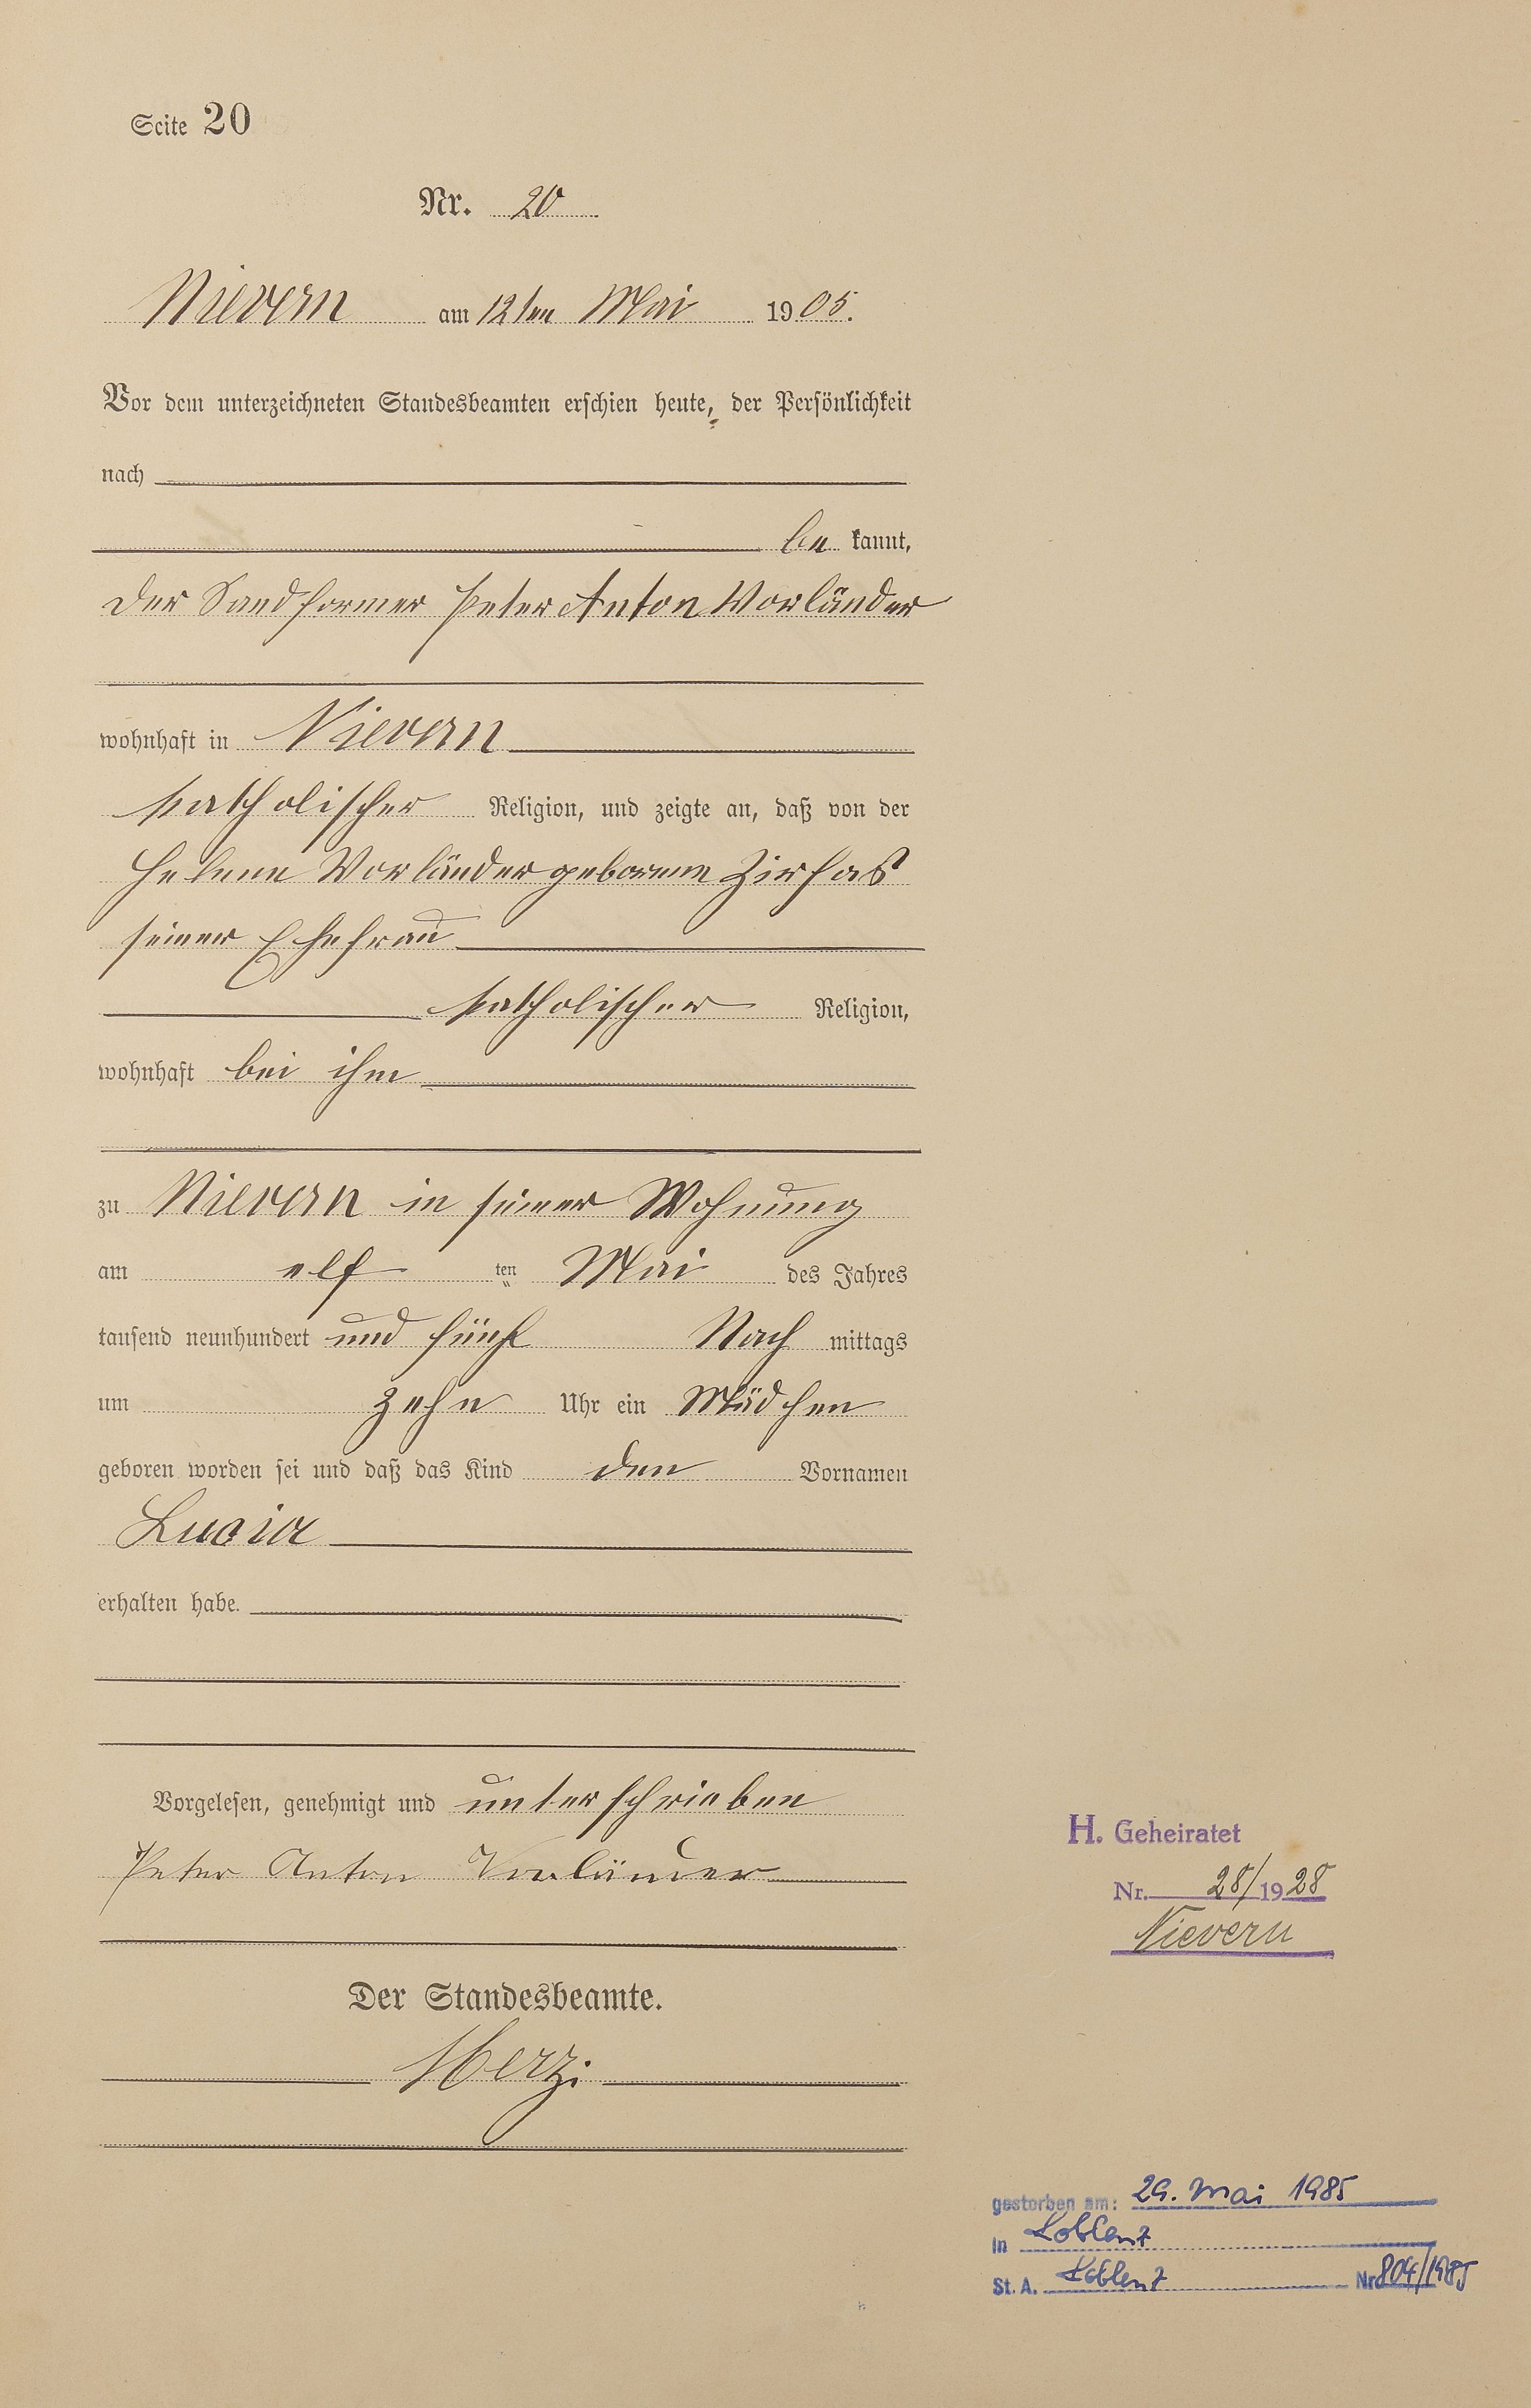 Seite 20
Nr. 20
Nievern am 12ten Mai 1905.
Vor dem unterzeichneten Standesbeamten erschien heute, der Persönlichkeit
nach
be kannt,
der Sandformer Peter Anton Vorländer
wohnhaft in Nievern
katholischer Religion, und zeigte an, daß von der
Helene Vorländer geborene Zirfas
seiner Ehefrau
katholischer Religion,
wohnhaft bei ihm
zu Nievern in seiner Wohnung
am elf ten Mai des Jahres
tausend neunhundert und fünf Nach mittags
um zehn Uhr ein Mädchen
geboren worden sei und daß das Kind den Vornamen
Lucia
erhalten habe.
Vorgelesen, genehmigt und unterschrieben
Peter Anton Vorländer
Der Standesbeamte.
H. Geheiratet
Nr. 28/1928
Nievern
gestorben am: 29. Mai 1985
in Koblenz
St. A. Koblenz Nr 804/1985